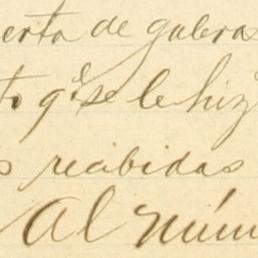 erta de gabras
to qe se le hiz
s recibidas
Al núm